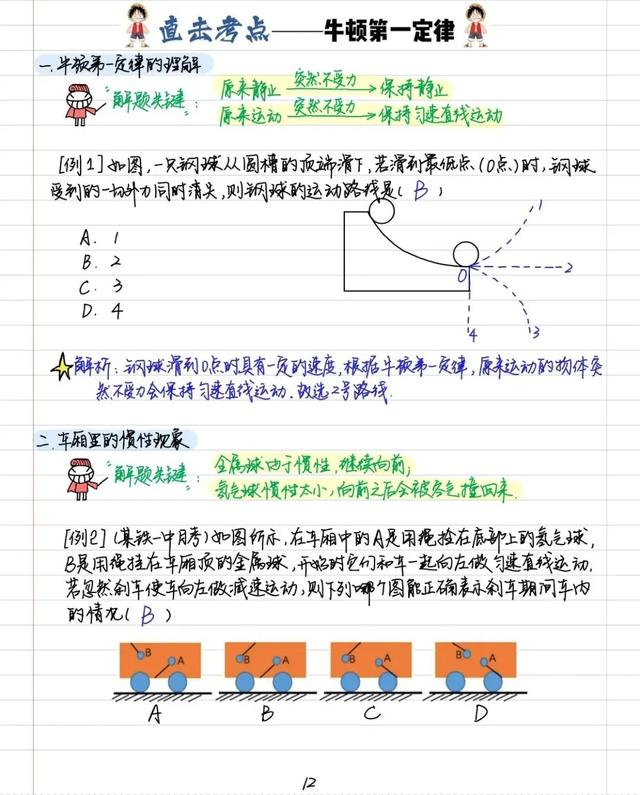 直击考点——牛顿第一定律
一.牛顿第一定律的理解
解题关键:
原来静止 突然不受力 保持静止
原来运动 突然不受力 保持匀速直线运动
[例1]如图,一只钢球从圆槽的顶端滑下,若滑到最低点(O点)时,钢球
受到的一切外力同时消失,则钢球的运动路线是( B )
A. 1
B. 2
C. 3
D. 4
O
1
2
3
4
解析:钢球滑到O点时具有一定的速度,根据牛顿第一定律,原来运动的物体突
然不受力会保持匀速直线运动.故选2号路线.
二.车厢里的惯性现象
解题关键:
金属球由于惯性,继续向前;
氢气球惯性太小,向前之后会被空气撞回来.
[例2](某铁一中月考)如图所示,在车厢中的A是用绳拴在底部上的氢气球,
B是用绳挂在车厢顶的金属球,开始时它们和车一起向左做匀速直线运动,
若忽然刹车使车向左做减速运动,则下列哪个图能正确表示刹车期间车内
的情况( B )
B A
B A
B A
B A
A B C D
12